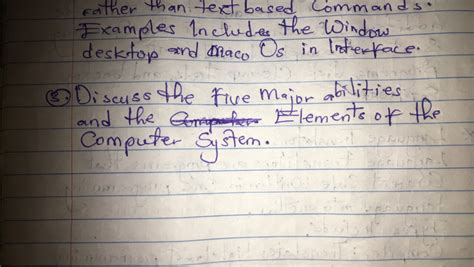 rather than text based Commands.
Examples Includes the Window
desktop and maco Os in Interface.
5. Discuss the Five Major abilities
and the Elements of the
Computer System.